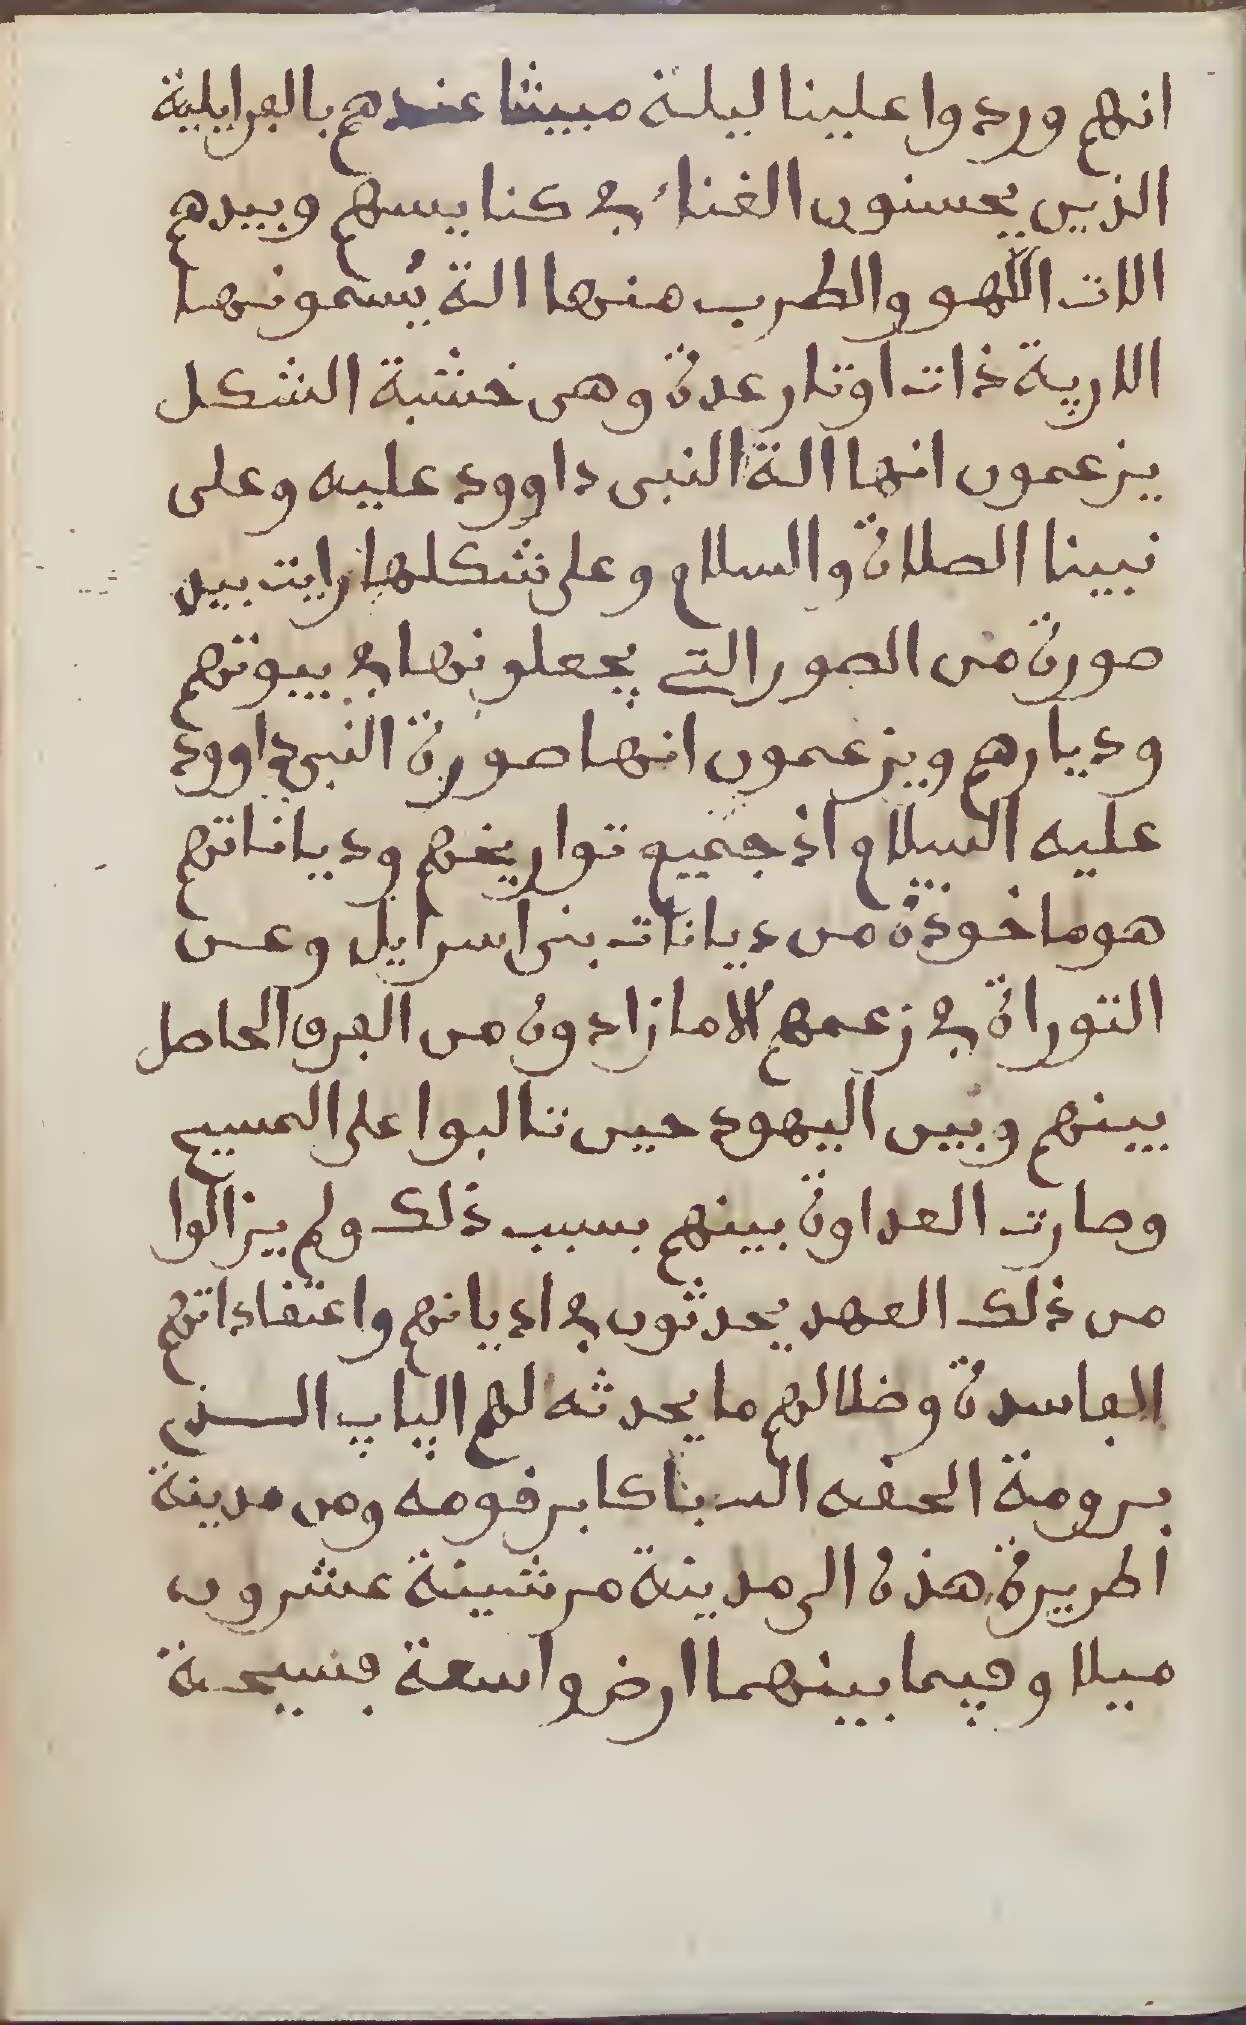 انهم وردوا علينا ليلة مبيتنا عندهم بالفرايلية
الذين يحسنون الغناء في كنايسهم وبيدهم
الات اللهو والطرب منها الة يُسمونها
الارپة ذات اوتار عدة وهى خشبة الشكل
يزعمون انها الة النبى داوود عليه وعلى
نبينا الصلاة والسلام وعلى شكلها رايت بيد
صورة من الصور التي يجعلونها في بيوتهم
وديارهم ويزعمون انها صورة النبى داوود
عليه السلام اذ جميع تواريخهم ودياناتهم
هو ماخوذة من ديانات بنى اسرايل وعن
التوراة في زعمهم الا ما زادوه من الفرق الحاصل
بينهم وبين اليهود حين تالبوا على المسيح
وصارت العداوة بينهم بسبب ذلك ولم يزالوا
من ذلك العهد يحدثون في اديانهم واعتقاداتهم
الفاسدة وضلالهم ما يحدثه لهم الپاپ الذي
برومة الحقه الله باكابر قومه ومن مدينة
اطريرة هذه الى مدينة مرشينة عشرون
ميلا وفيما بينهما ارض واسعة فسيحة